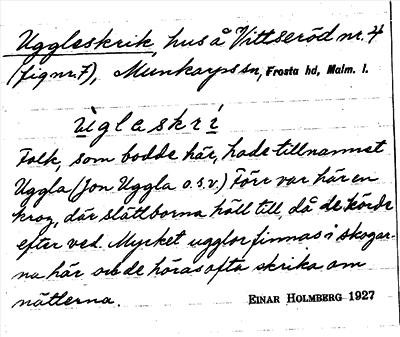 Uggleskrik, hus å Vittseröd nr. 4
(fig nr. 7), Munkarps sn, Frosta hd, Malm. l.
ùglaskrí
Folk, som bodde här, hade tillnamnet
Uggla (Jon Uggla o.s.v.) Förr var här en
krog, där slättborna höll till, då de körde
efter ved. Mycket ugglor finnas i skogar-
na här och de höras ofta skrika om
nätterna.
EINAR HOLMBERG 1927